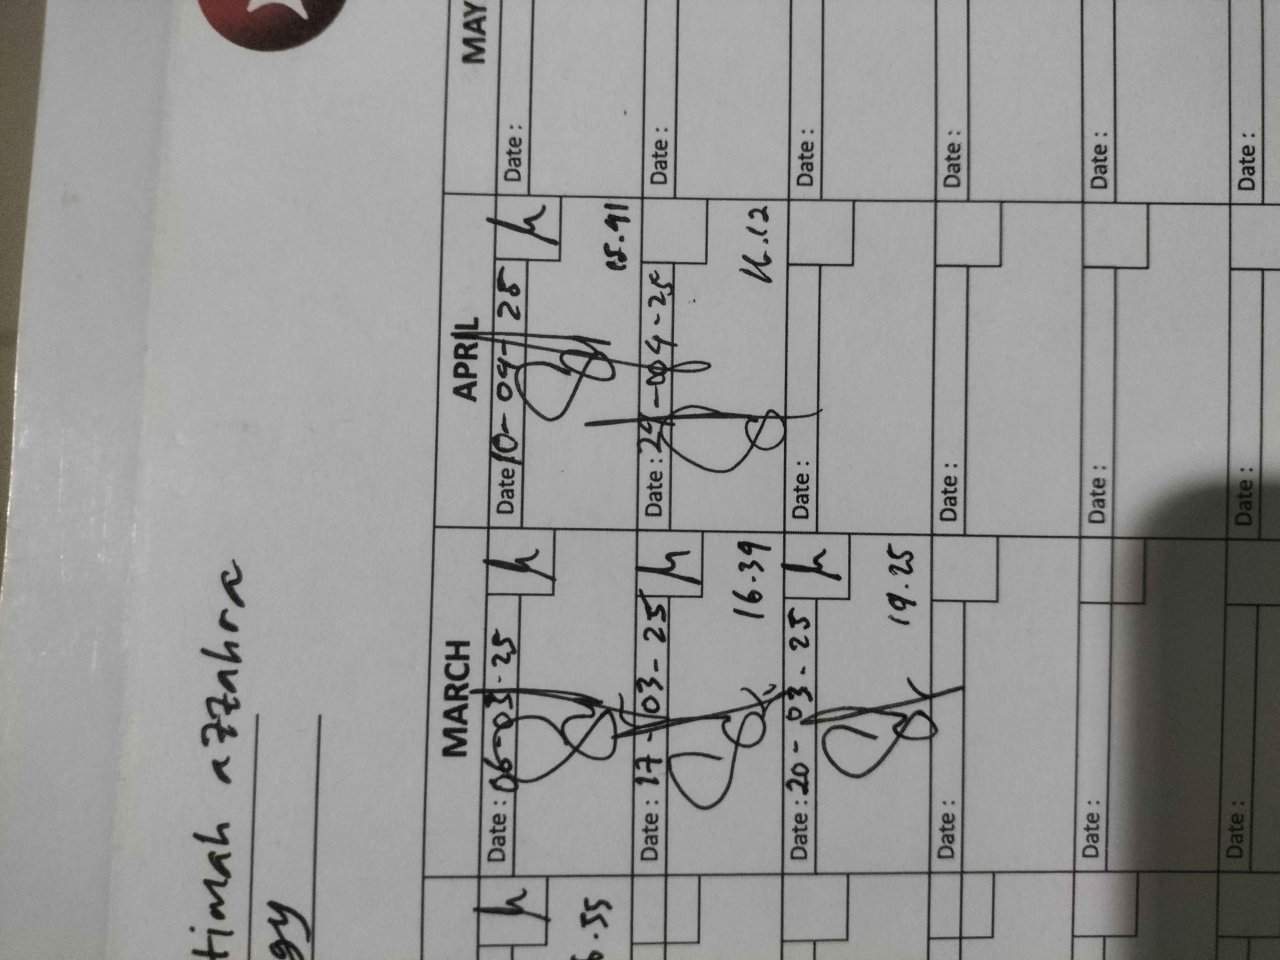 timah azzahra
gy
MARCH APRIL MAY
Date: 06-03-25
Date: 10-04-25
Date:
15.41
Date: 17-03-25
16.39
Date: 24-04-25
16.12
Date:
Date: 20-03-25
19.25
Date:
Date:
Date:
Date:
Date:
Date:
Date:
Date:
Date:
Date:
Date:
.55